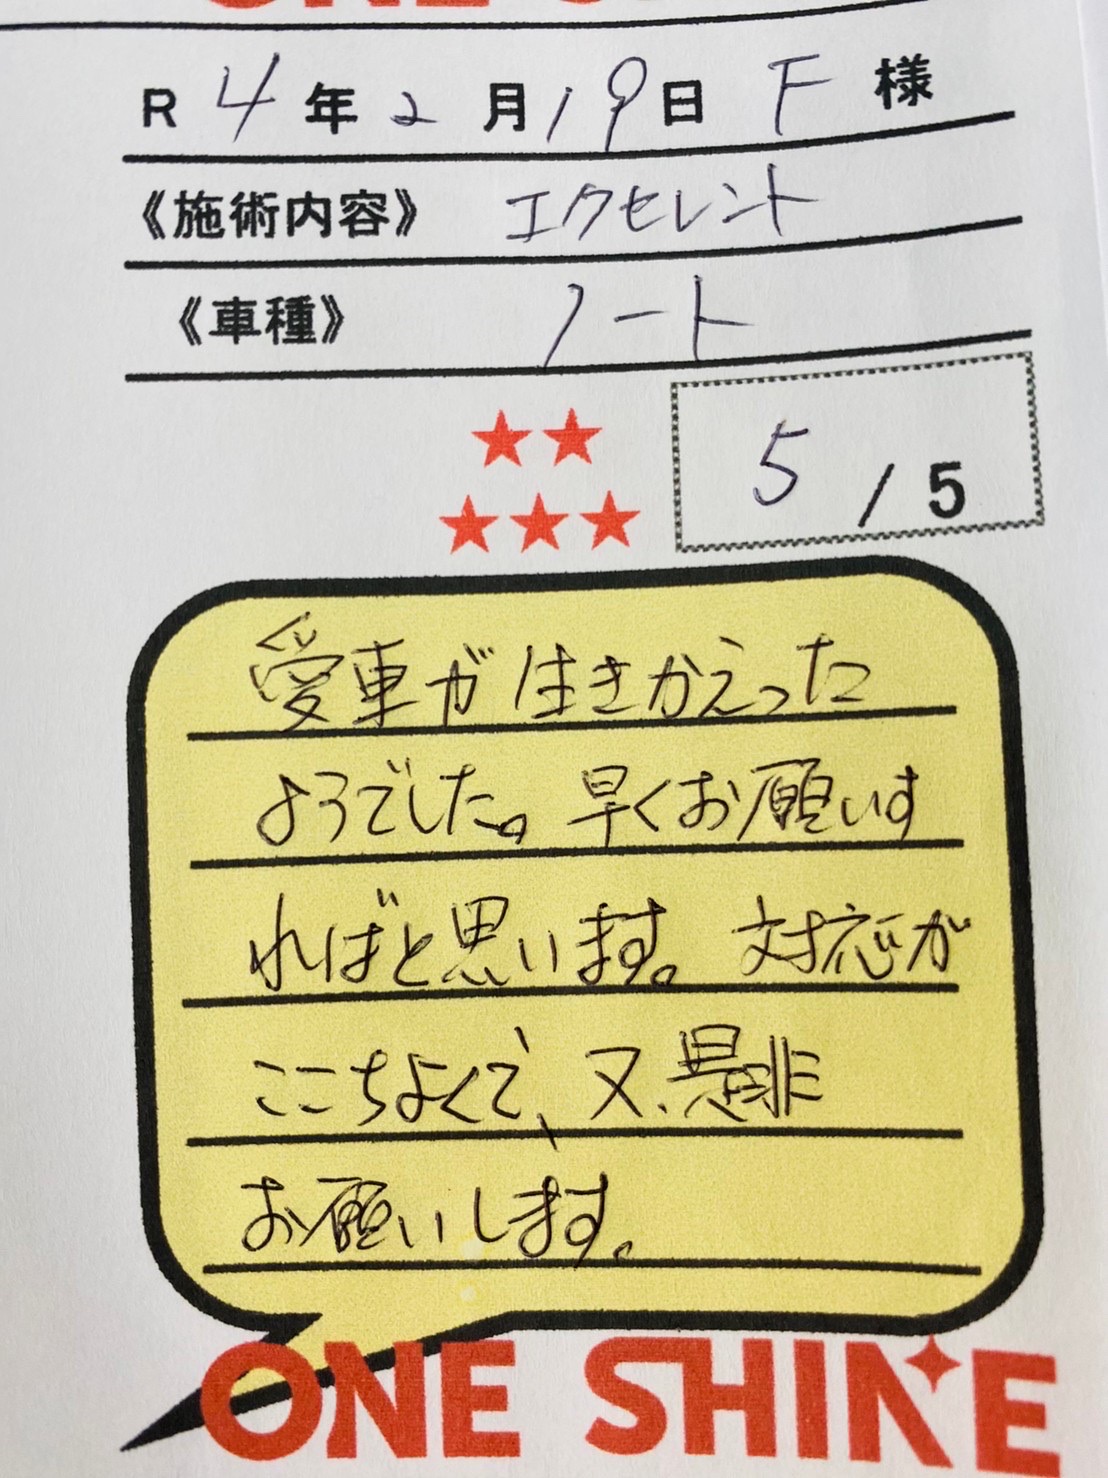 R 4年 2月 19日 F 様
《施術内容》 エクセレント
《車種》 ノート
★★
★★★
5 / 5
愛車が生きかえった
ようでした。早くお願いす
ればと思います。対応が
ここちよくて、又、是非
お願いします。
ONE SHINE